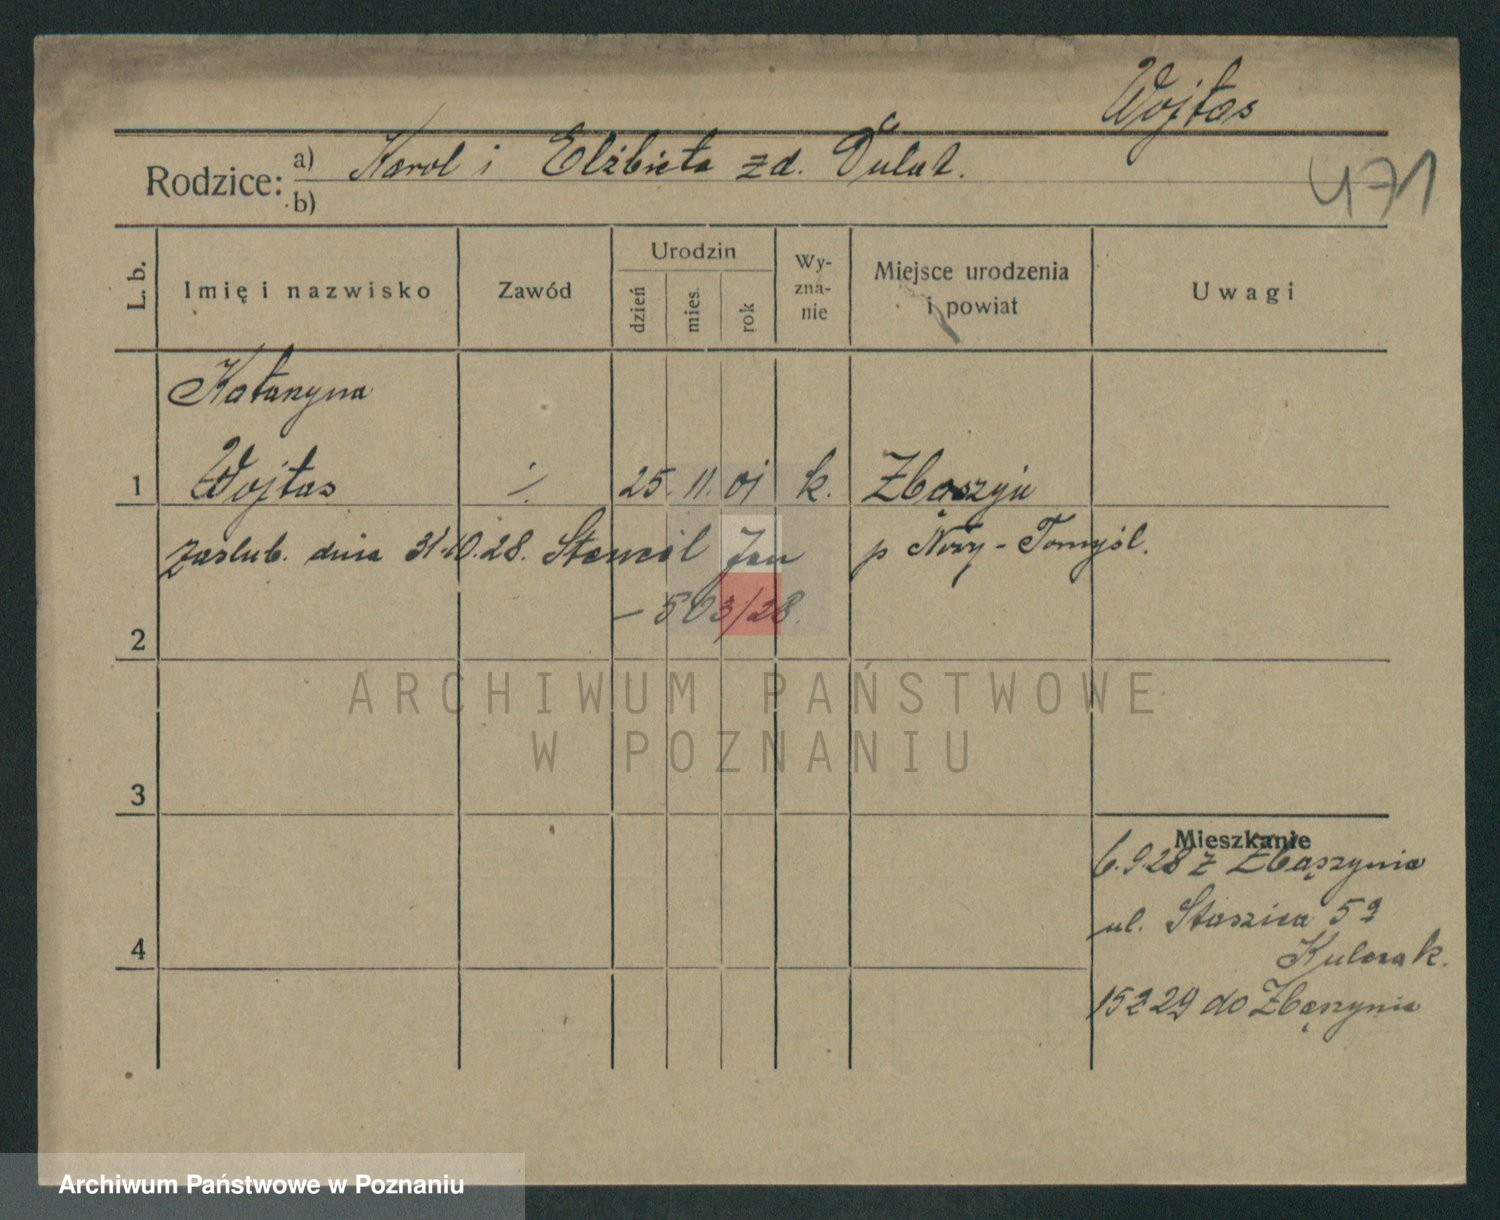 Wojtas
471
Rodzice: a) Karol i Elżbieta zd.
b)
L. b.
Imię i nazwisko
Zawód
Urodzin
dzień
mies.
rok
Wy-
zna-
nie
Miejsce urodzenia
i powiat
Uwagi
Katarzyna
1 Wojtas ·/. 25. 11. 01 k. Zbąszyń
zaslub. dnia 31.10.28. Jan p Nowy-Tomyśl.
— 503/28.
2
ARCHIWUM PAŃSTWOWE
W POZNANIU
3
Mieszkanie
6.9.28 z Zbąszynia
ul. Staszica
4
Kulczak.
do Zbąszynia
Archiwum Państwowe w Poznaniu